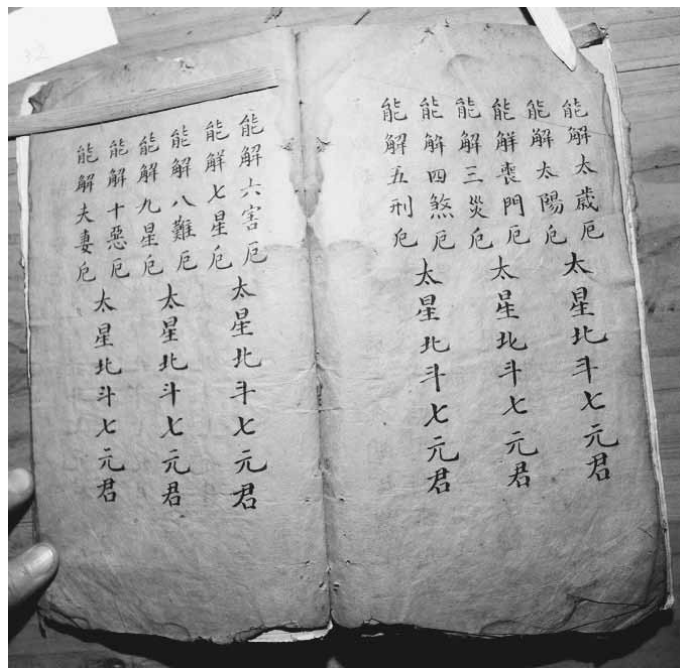 能解太歲厄
能解太陽厄
太星北斗七元君
能解喪門厄
能解三災厄
太星北斗七元君
能解四煞厄
能解五刑厄
太星北斗七元君
能解六害厄
能解七星厄
太星北斗七元君
能解八難厄
能解九星厄
太星北斗七元君
能解十惡厄
能解夫妻厄
太星北斗七元君